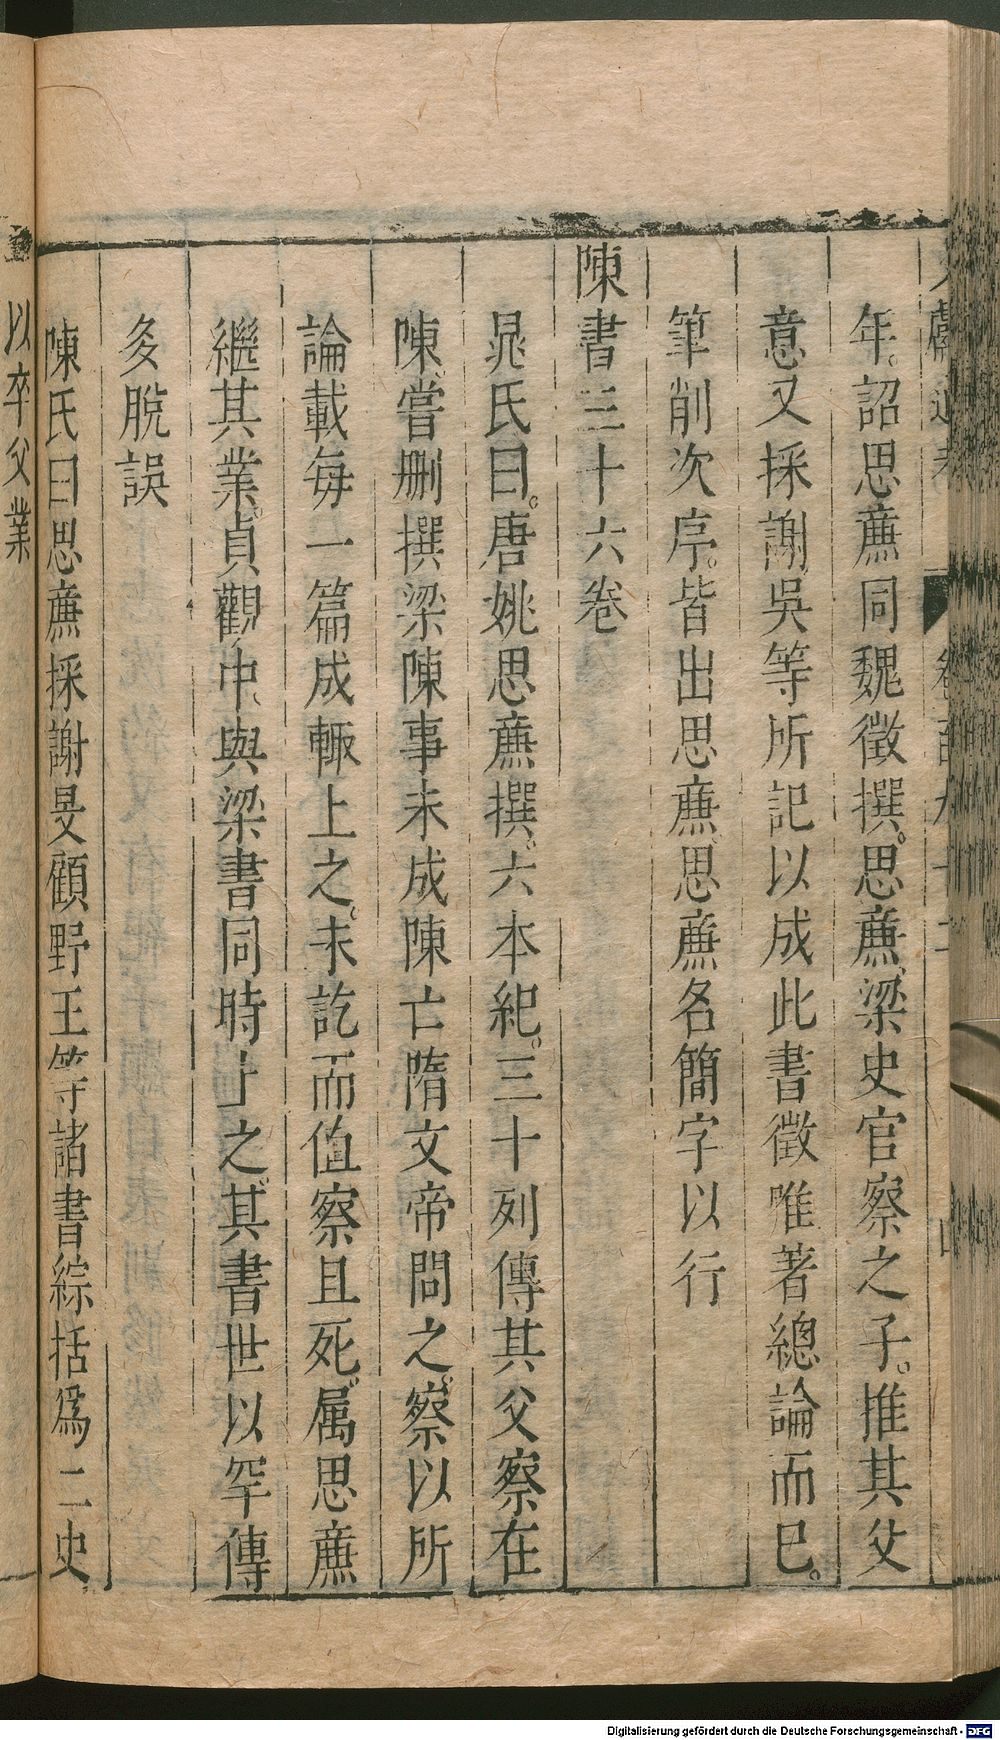 年。詔思廉同魏徵撰。思廉、梁史官察之子。推其父
意又採謝吳等所記以成此書徵唯著總論而已。
筆削次序。皆出思廉思廉名簡字以行
陳書三十六卷
晁氏曰。唐姚思廉撰。六本紀。三十列傳其父察在
陳、嘗刪撰梁陳事未成陳亡隋文帝問之。察以所
論載每一篇成輒上之。未訖而值察且死。属思廉
繼其業。貞觀中、與梁書同時上之。其書世以罕傳
多脫誤
陳氏曰思廉採謝旻顧野王等諸書綜括爲二史
以卒父業
Digitalisierung gefördert durch die Deutsche Forschungsgemeinschaft - DFG